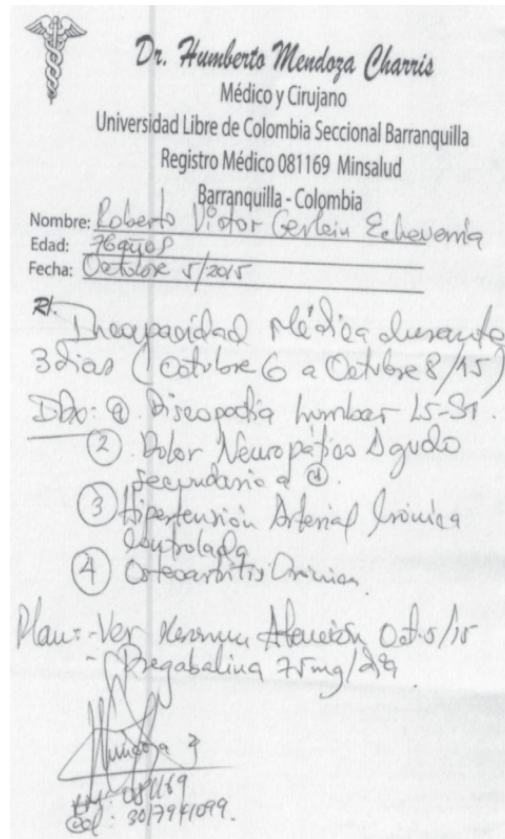 Dr. Humberto Mendoza Charris
Médico y Cirujano
Universidad Libre de Colombia Seccional Barranquilla
Registro Médico 081169 Minsalud
Barranquilla - Colombia
Nombre: Roberto Victor Gerlein Echeverria
Edad: 76 años
Fecha: Octubre 5/2015
R/.
Incapacidad Médica durante
3 dias (Octubre 6 a Octubre 8/15)
IDx: ① Discopatia lumbar L5-S1.
② Dolor Neuropático Agudo
secundario a ①.
③ Hipertensión Arterial Crónica
Controlada
④ Osteoartritis Crónica.
Plan: - Ver Atención Oct. 5/15
- Pregabalina 75mg/día
081169
Cel: 3017941099.